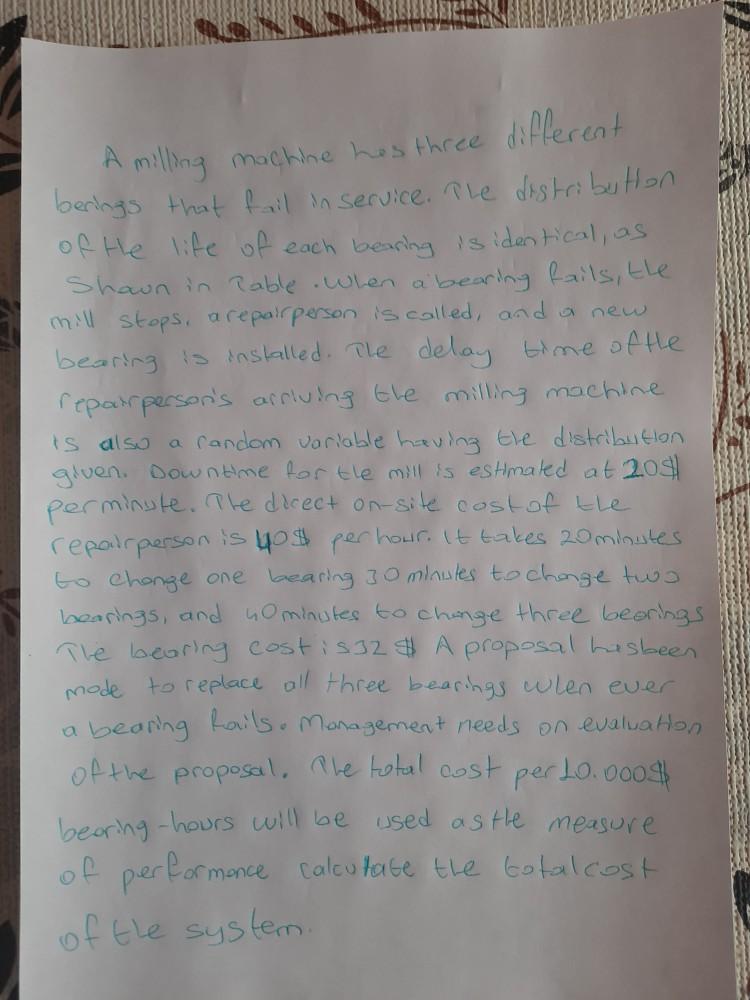 A milling machine has three different
berings that fail in service. The distribution
of the life of each bearing is identical, as
Shawn in Table. When a bearing fails, the
mill stops, a repairperson is called, and a new
bearing is installed. The delay time of the
repairperson's arriving the milling machine
is also a random variable having the distribution
given. Downtime for the mill is estimated at 20$
per minute. The direct on-site cost of the
repairperson is 40$ per hour. It takes 20 minutes
to change one bearing 30 minutes to change two
bearings, and 40 minutes to change three bearings
The bearing cost is 32 $ A proposal has been
made to replace all three bearings when ever
a bearing fails. Management needs on evaluation
of the proposal. The total cost per 10.000$
bearing-hours will be used as the measure
of performance calculate the total cost
of the system.